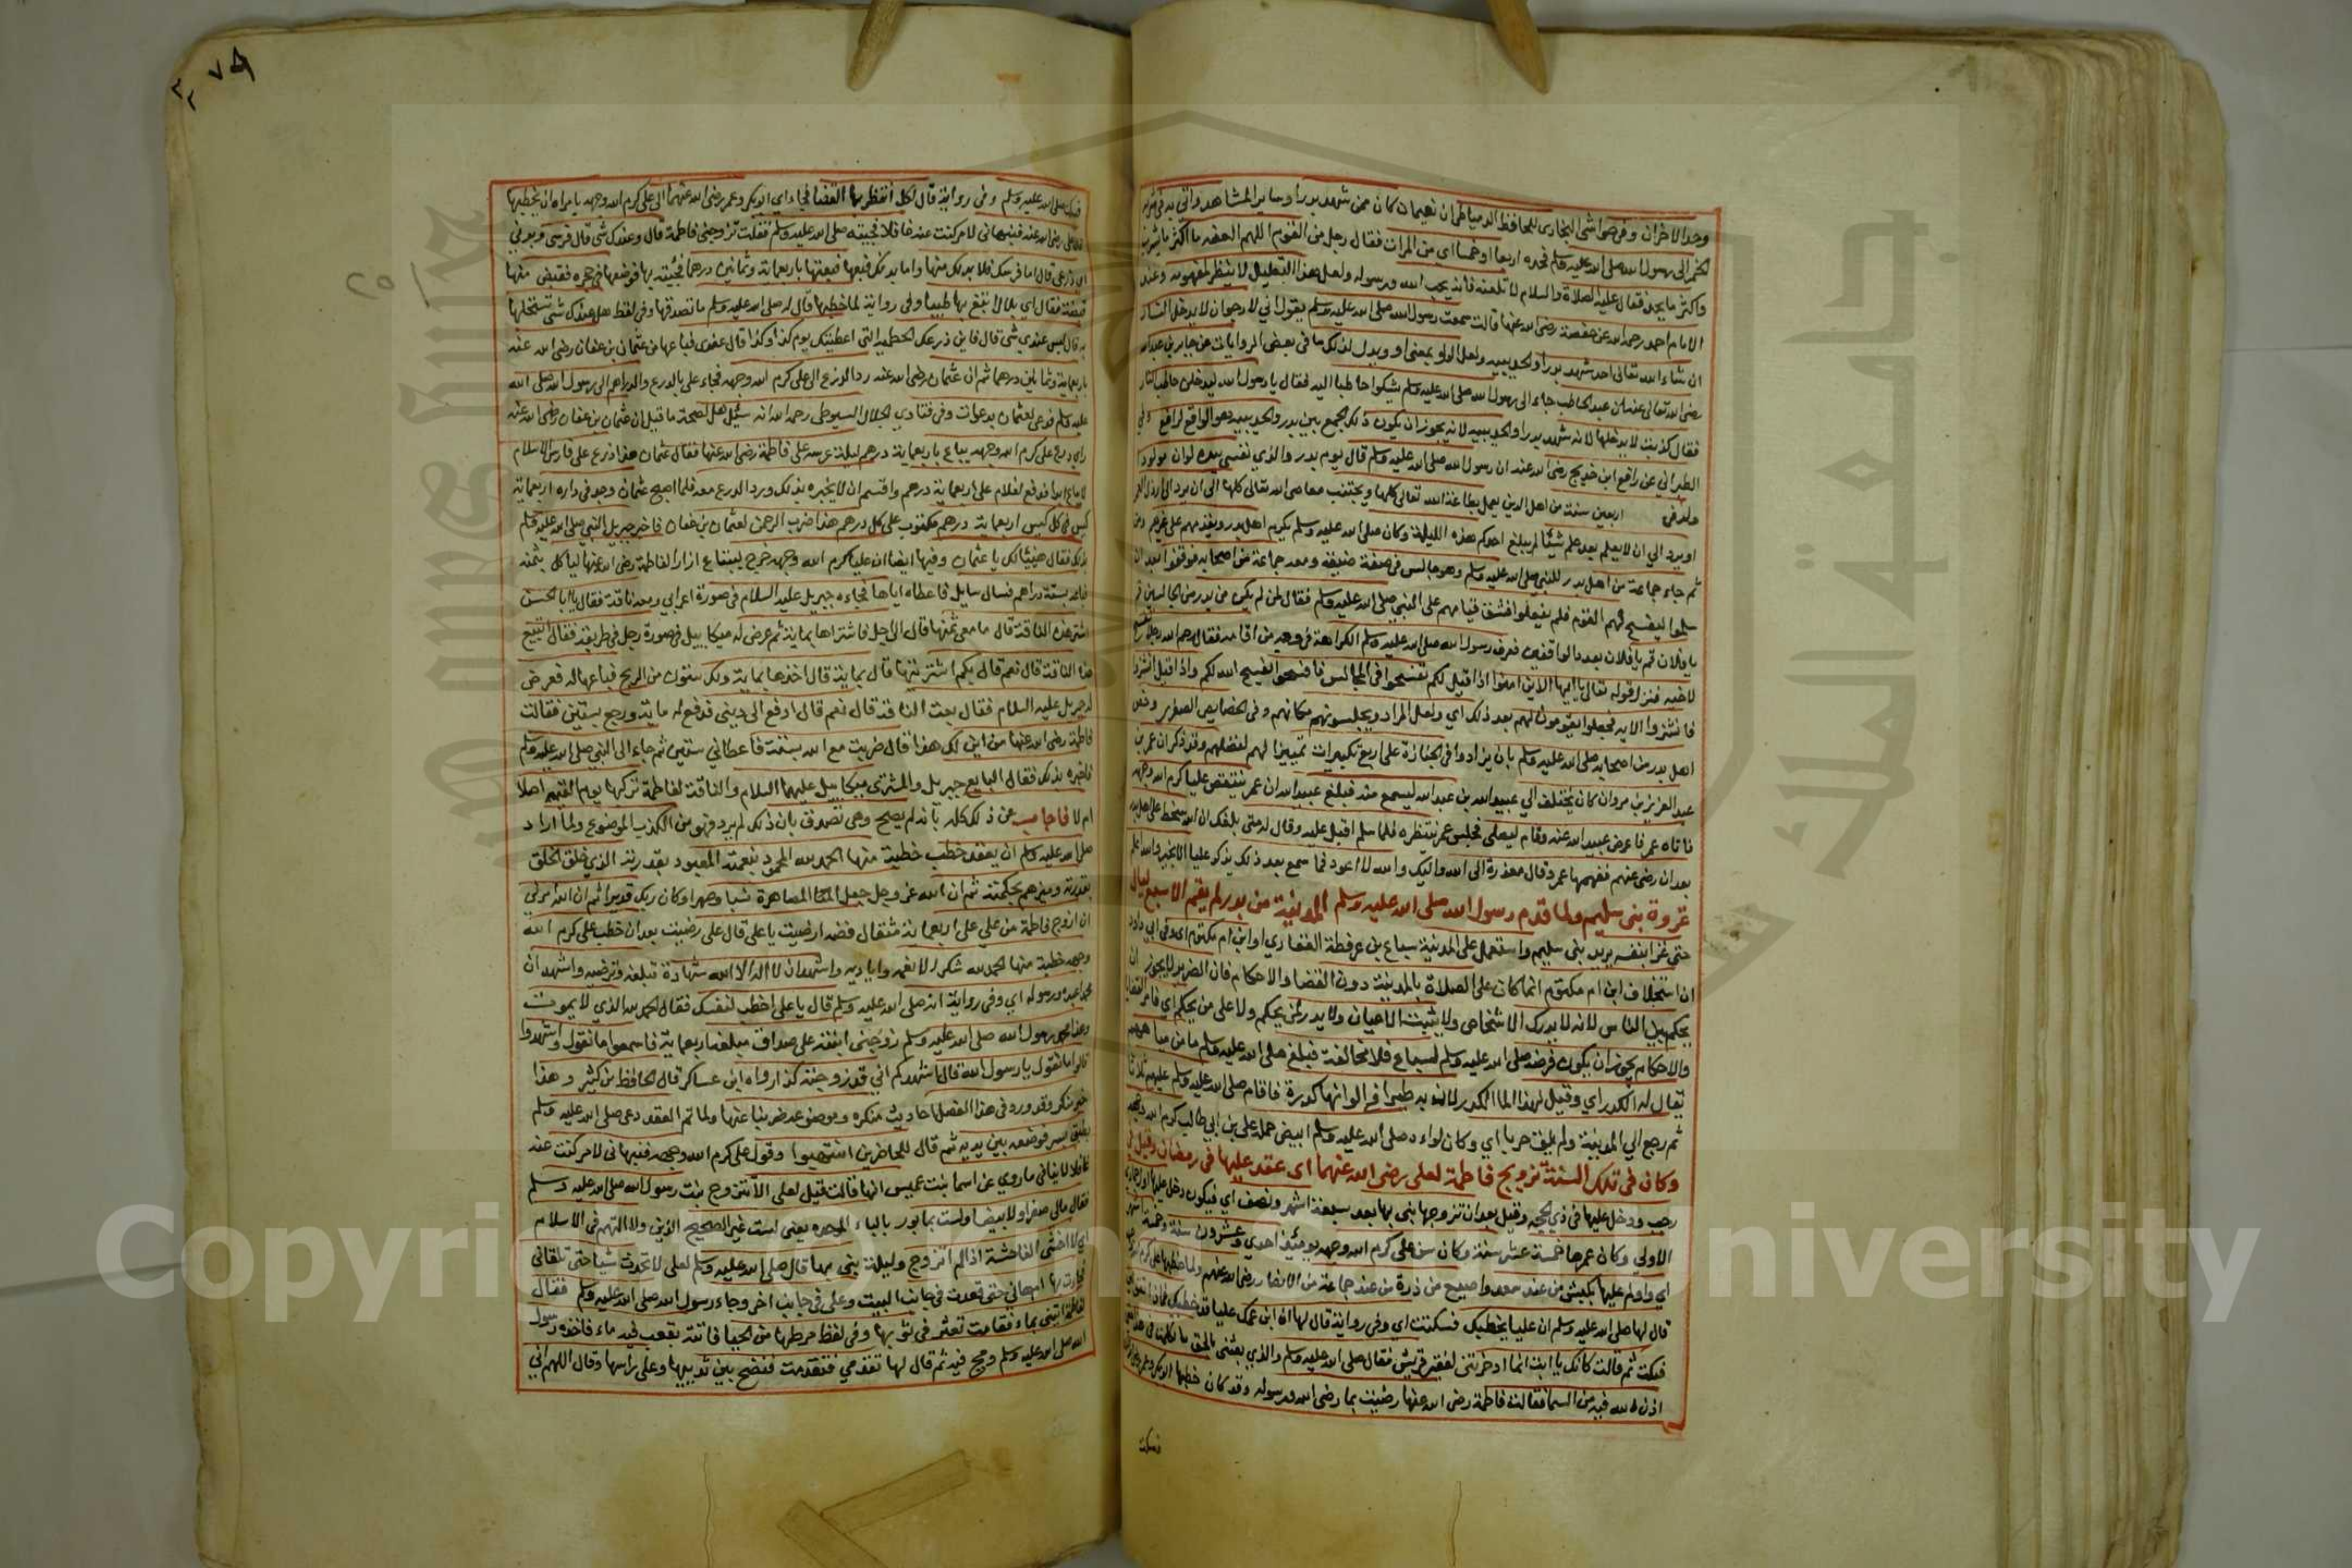 وحد الاخران وفي حواشي البخاري للحافظ الدمياطي ان نعيمان كان ممن شهد بدرا وساير المشاهد واتي به في شربه
الخمر الى رسول الله صلى الله عليه وسلم فحده اربعا او خمسا اي من المرات فقال رجل من القوم اللهم العنه ما اكثر ما يشرب
واكثر ما يحد فقال عليه الصلاة والسلام لا تلعنه فانه يحب الله ورسوله ولعل هذا التعليل لا ينظر لمفهومه وعند
الامام احمد رحمه الله عن حفصة رضي الله عنها قالت سمعت رسول الله صلى الله عليه وسلم يقول اني لارجو ان لا يدخل النار
ان شاء الله تعالى احد شهد بدرا والحديبيه ولعل الواو بمعنى او ويدل لذلك ما في بعض الروايات عن جابر بن عبد الله
رضي الله تعالى عنه ان عبد الحاطب جاء الى رسول الله صلى الله عليه وسلم يشكوا حاطبا اليه فقال يا رسول الله ليدخلن حاطب النار
فقال كذبت لا يدخلها لانه شهد بدرا والحديبيه لانه يجوز ان يكون ذلك لجمع بين بدر والحديبيه وهو الواقع لرافع وفي
الطبراني عن رافع ابن خديج رضي الله عنه ان رسول الله صلى الله عليه وسلم قال يوم بدر والذي نفسي بيده لو ان مولودا
ولد في اربعين سنة من اهل الدين يعمل بطاعة الله تعالى كلها ويجتنب معاصي الله تعالى كلها الى ان يرد الى ارذل العمر
او يرد الي ان لا يعلم بعد علم شيئا لم يبلغ احدكم هذه الليلة وكان صلى الله عليه وسلم يكرم اهل بدر ويقدمهم على غيرهم ومن
ثم جاء جماعة من اهل بدر للنبي صلى الله عليه وسلم وهو جالس في صفة ضيقة ومعه جماعة من اصحابه فوقفوا بعد ان
سلموا ليفسح لهم القوم فلم يفعلوا فشق قيامهم على النبي صلى الله عليه وسلم فقال لمن لم يكن من بدر من الجالسين قم
يا فلان قم يا فلان بعدد الواقفين فعرف رسول الله صلى الله عليه وسلم الكراهة في وجه من اقامه فقال رحم الله رجلا يفسح
لاخيه فنزل قوله تعالى يا ايها الذين امنوا اذا قيل لكم تفسحوا في المجالس فافسحوا يفسح الله لكم واذا قيل انشزوا
فانشزوا الايه فجعلوا يقومون لهم بعد ذلك اي ولعل المراد ويجلسونهم مكانهم وفي الخصايص الصغرى وخص
اهل بدر من اصحابه صلى الله عليه وسلم بان يزادوا في الجنازة على اربع تكبيرات تمييزا لهم لفضلهم وقد ذكر ان عمر بن
عبد العزيز بن مروان كان يختلف الي عبيد الله بن عبد الله ليسمع منه فبلغ عبيد الله ان عمر ينتقص عليا كرم الله وجهه
فاتاه عمر فاعرض عبيد الله عنه وقام ليصلى فجلس عمر ينتظره فلما سلم اقبل عليه وقال له متى بلغك ان الله سخط على اهل بدر
بعد ان رضي عنهم ففهمها عمر وقال معذرة الى الله واليك والله لا اعود فما سمع بعد ذلك يذكر عليا الا بخير والله اعلم
غزوة بني سليم ولما قدم رسول الله صلى الله عليه وسلم المدينة من بدر لم يقم الا سبع ليال
حتى غزا بنفسه يريد بني سليم واستعمل على المدينة سباع بن عرفطة الغفاري او ابن ام مكتوم اي وفي ابي داود
ان استخلاف ابن ام مكتوم انما كان على الصلاة بالمدينة دون القضا والاحكام فان الضرير لا يجوز ان
يحكم بين الناس لانه لا يدرك الاشخاص ولا يثبت الاعيان ولا يدري لمن يحكم ولا على من يحكم اي فامر القضا
والاحكام يجوز ان يكون فرضه صلى الله عليه وسلم لسباع فلا مخالفة فبلغ صلى الله عليه وسلم ما من مياههم
يقال له الكدر اي وقيل لهذا الما الكدر لان به طيرا في الوانها كدرة فاقام صلى الله عليه وسلم عليه ثلاثا
ثم رجع الي المدينة ولم يلق حربا اي وكان لواءه صلى الله عليه وسلم ابيض حمله على بن ابي طالب كرم الله وجهه
وكان في تلك السنة تزويج فاطمة لعلى رضي الله عنهما اي عقد عليها في رمضان وقيل في
رجب ودخل عليها في ذي الحجه وقيل بعد ان تزوجها بنى بها بعد سبعة اشهر ونصف اي فيكون دخل عليها
الاولى وكان عمرها خمسة عشر سنة وكان سن على كرم الله وجهه يومئذ احدي وعشرون سنة وخمسة
اي واولم عليها بكبش من عند سعد واصيع من ذرة من عند جماعة من الانصار رضي الله عنهم ولما خطبها على كرم الله
قال لها صلى الله عليه وسلم ان عليا يخطبك فسكتت اي وفي رواية قال لها ان ابن عمك عليا قد خطبك فماذا تقولين
فبكت ثم قالت كانك يا ابت انما ادخرتني لفقير قريش فقال صلى الله عليه وسلم والذي بعثني بالحق ما تكلمت في هذا حتى
اذن لي الله فيه من السما فقالت فاطمة رضي الله عنها رضيت بما رضي الله ورسوله وقد كان خطبها ابو بكر وعمر
فسكت
٧٥
فسكت صلى الله عليه وسلم وفي رواية قال لكل انتظر بها القضا فجاء اي ابو بكر وعمر رضي الله عنهما الى على كرم الله وجهه يامرانه ان يخطبها
قال علي رضي الله عنه فنبهاني لامر كنت عنه غافلا فجيته صلى الله عليه وسلم فقلت تزوجني فاطمة قال وعندك شي قال فرسي وبدني
اي درعي قال اما فرسك فلا بد لك منها واما بدنك فبعها فبعتها باربعماية وثمانين درهما فجيته بها فوضعها في حجره فقبض منها
قبضة فقال اي بلال ابتغ بها طيبا وفي رواية لما خطبها قال له صلى الله عليه وسلم ما تصدقها وفي لفظ هل عندك شي تستحلها
به قال ليس عندي شي قال فاين درعك الحطمية التي اعطيتك يوم كذا وكذا قال عندي فباعها من عثمان بن عفان رضي الله عنه
باربعماية وثمانين درهما ثم ان عثمان رضي الله عنه رد الدرع الى على كرم الله وجهه فجاء على بالدرع والدراهم الى رسول الله صلى الله
عليه وسلم فدعى لعثمان بدعوات وفي فتاوي الجلال السيوطي رحمه الله انه سئل هل لصحة ما قيل ان عثمان بن عفان رضي الله عنه
راي درع على كرم الله وجهه يباع باربعماية درهم ليلة عرسه على فاطمة رضي الله عنها فقال عثمان هذا درع على فارس الاسلام
لا يباع ابدا فدفع لغلام على اربعماية درهم واقسم ان لا يخبره بذلك ورد الدرع معه فلما اصبح عثمان وجد في داره اربعماية
كيس في كل كيس اربعماية درهم مكتوب على كل درهم هذا ضرب الرحمن لعثمان بن عفان فاخبر جبريل النبي صلى الله عليه وسلم
بذلك فقال هنيئا لك يا عثمان وفيها ايضا ان عليا كرم الله وجهه خرج ليبتاع ازار الفاطمة رضي الله عنها لياكل بثمنه
فباعه بستة دراهم فسال سايل فاعطاه اياها فجاءه جبريل عليه السلام في صورة اعرابي ومعه ناقة فقال يا ابا الحسن
اشتر هذه الناقة قال ما معي ثمنها قال الى اجل فاشتراها بماية ثم عرض له ميكاييل في صورة رجل في طريقه فقال اتبيع
هذه الناقة قال نعم قال بكم اشتريتها قال بماية قال اخذها بماية ولك ستون من الربح فباعها له فعرض
له جبريل عليه السلام فقال بعت الناقة قال نعم قال ادفع الى ديني فدفع له ماية ورجع بستين فقالت
فاطمة رضي الله عنها من اين لك هذا قال ضربت مع الله بستة فاعطاني ستين ثم جاء الى النبي صلى الله عليه وسلم
فاخبره بذلك فقال البايع جبريل والمشتري ميكاييل عليهما السلام والناقة لفاطمة تركبها يوم القيمه اصلا
ام لا فاجاب عن ذلك كله بانه لم يصح وهي تصدق بان ذلك لم يرد فهو من الكذب الموضوع ولما اراد
صلى الله عليه وسلم ان يعقد خطب خطبة منها الحمد لله المحمود بنعمته المعبود بقدرته الذي خلق الخلق
بقدرته وميزهم بحكمته ثم ان الله عز وجل جعل المصاهرة نسبا وصهرا وكان ربك قديرا ثم ان الله امرني
ان ازوج فاطمة من على على اربعماية مثقال فضة ارضيت يا على قال على رضيت بعد ان خطب على كرم الله
وجهه خطبة منها الحمد لله شكرا لانعمه واياديه واشهد ان لا اله الا الله شهادة تبلغه وترضيه واشهد ان
محمدا عبده ورسوله اي وفي رواية انه صلى الله عليه وسلم قال يا على اخطب لنفسك فقال الحمد لله الذي لا يموت
وهذا محمد رسول الله صلى الله عليه وسلم زوجني ابنته على صداق مبلغه اربعماية فاسمعوا ما نقول واشهدوا
قالوا ما تقول يا رسول الله قال اشهدكم اني قد زوجته كذا رواه ابن عساكر قال الحافظ بن كثير وهذا
خبر منكر وقد ورد في هذا الفصل احاديث منكره وموضوعه ضربنا عنها ولما تم العقد دعى صلى الله عليه وسلم
بطبق بسر فوضعه بين يديه ثم قال للحاضرين انتهبوا وقول على كرم الله وجهه فنبهاني لامر كنت عنه
غافلا لا ينافي ما روي عن اسما بنت عميس انها قالت قيل لعلى الا تتزوج بنت رسول الله صلى الله عليه وسلم
فقال مالى صفرا ولا بيضا ولست بمابور بالباء الموحده يعني لست غير الصحيح الدين ولا المتهم في الاسلام
اي لا اخشى الفاحشة اذا لم اتزوج وليلة بنى بها قال صلى الله عليه وسلم لعلى لا تحدث شيا حتى تلقاني
فجاءت بها ام ايمن حتى قعدت في جانب البيت وعلى في جانب اخر وجاء رسول الله صلى الله عليه وسلم فقال
لفاطمة ايتيني بماء فقامت تعثر في ثوبها وفي لفظ مرطها من الحيا فاتته بقعب فيه ماء فاخذه رسول
الله صلى الله عليه وسلم ومج فيه ثم قال لها تقدمي فتقدمت فنضح بين ثدييها وعلى راسها وقال اللهم اني
Copyright © King Saud University